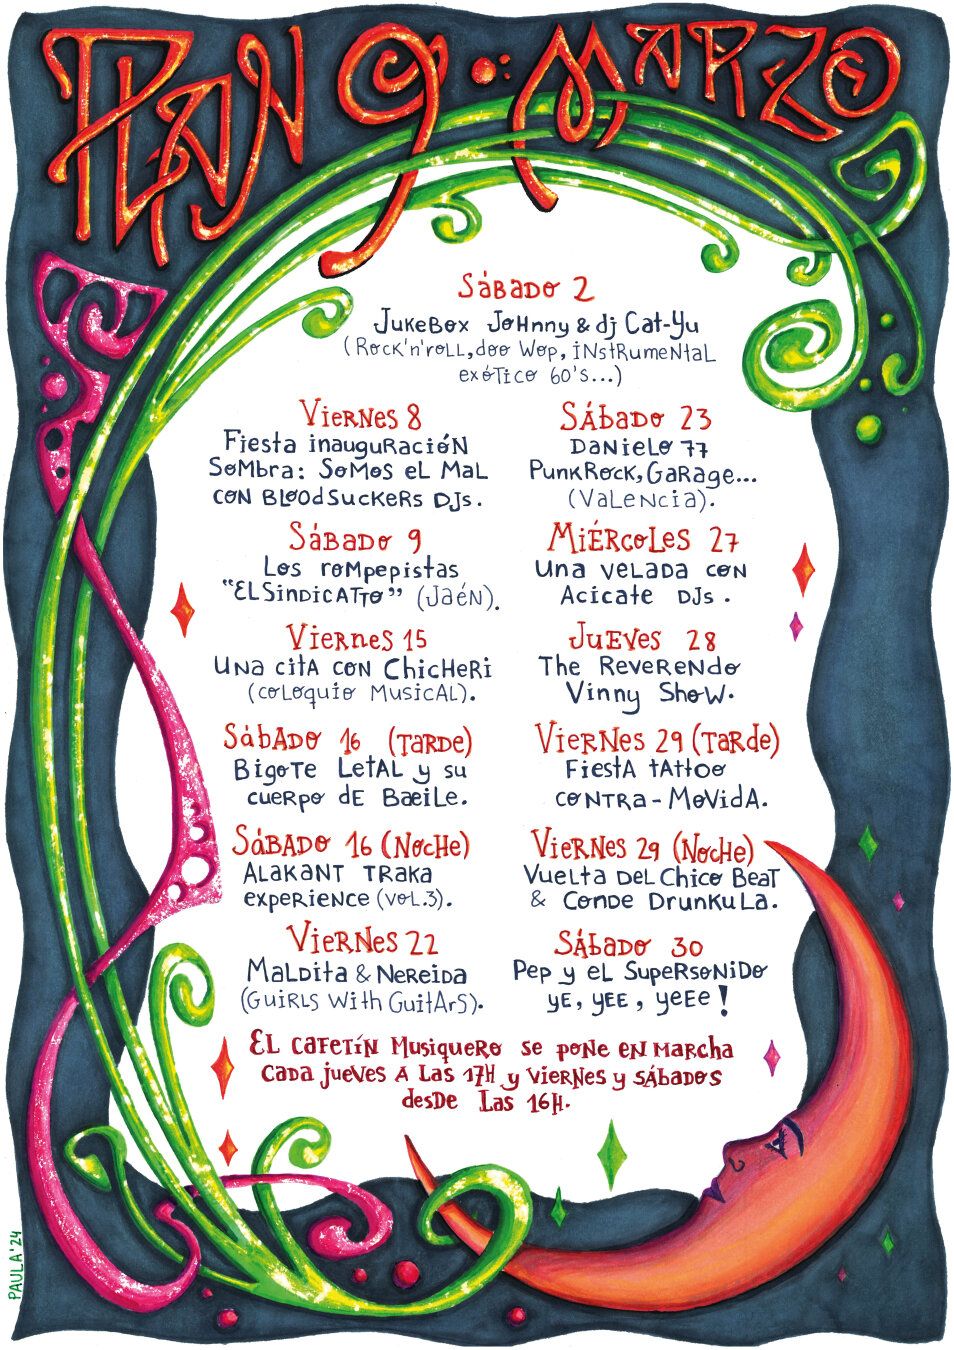 PLAN 9 · MARZO
SÁBADO 2
JUKEBOX JOHNNY & dj CAT-YU
(ROCK'N'ROLL, doo WOP, INSTRUMENTAL
EXÓTICO 60'S...)
VIERNES 8
FIESTA INAUGURACIÓN
SOMBRA: SOMOS EL MAL
CON BLOODSUCKERS DJS.
SÁBADO 9
LOS ROMPEPISTAS
"EL SINDICATTO" (JAÉN).
VIERNES 15
UNA CITA CON CHICHERI
(COLOQUIO MUSICAL).
SÁBADO 16 (TARDE)
BIGOTE LETAL y su
CUERPO dE BAEILE.
SÁBADO 16 (NOCHE)
ALAKANT TRAKA
EXPERIENCE (VOL.3).
VIERNES 22
MALDITA & NEREIDA
(GUIRLS WITH GUITARS).
SÁBADO 23
DANIELO 77
PUNKROCK, GARAGE...
(VALENCIA).
MIÉRCOLES 27
UNA VELADA CON
ACICATE DJS.
JUEVES 28
THE REVERENDO
VINNY SHOW.
VIERNES 29 (TARdE)
FIESTA TATTOO
CONTRA-MOVIDA.
VIERNES 29 (NOCHE)
VUELTA DEL CHICO BEAT
& CONDE DRUNKULA.
SÁBADO 30
PEP y EL SUPERSONIDO
YE, YEE, YEEE!
EL CAFETÍN MUSIQUERO SE PONE EN MARCHA
CADA JUEVES A LAS 17H y VIERNES y SÁBADOS
DESDE LAS 16H.
PAULA'24